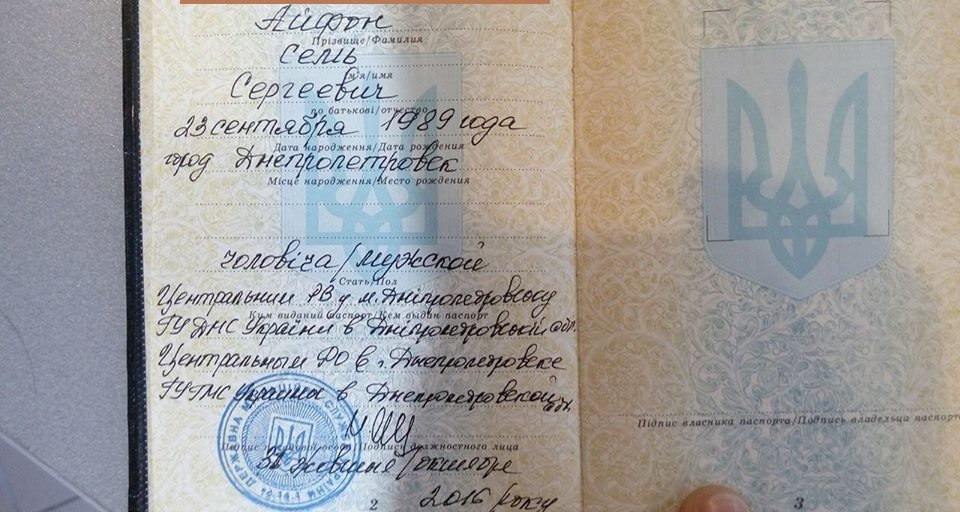 Айфон
Прізвище/Фамилия
Семь
м'я/имя
Сергеевич
по батькові/отчество
23 сентября 1989 года
Дата народження/Дата рождения
город Днепропетровск
Місце народження/Место рождения
чоловіча/мужской
Стать/Пол
Центральним РВ у м. Дніпропетровську
Ким виданий паспорт/Кем выдан паспорт
ГУ ДМС України в Дніпропетровській обл.
Центральным РО в г. Днепропетровске
ГУ ГМС Украины в Днепропетровской обл.
Підпис власника паспорта/Подпись владельца паспорт
Підпис посадової особи/Подпись должностного лица
жовтня/октября
2 2016 року
3